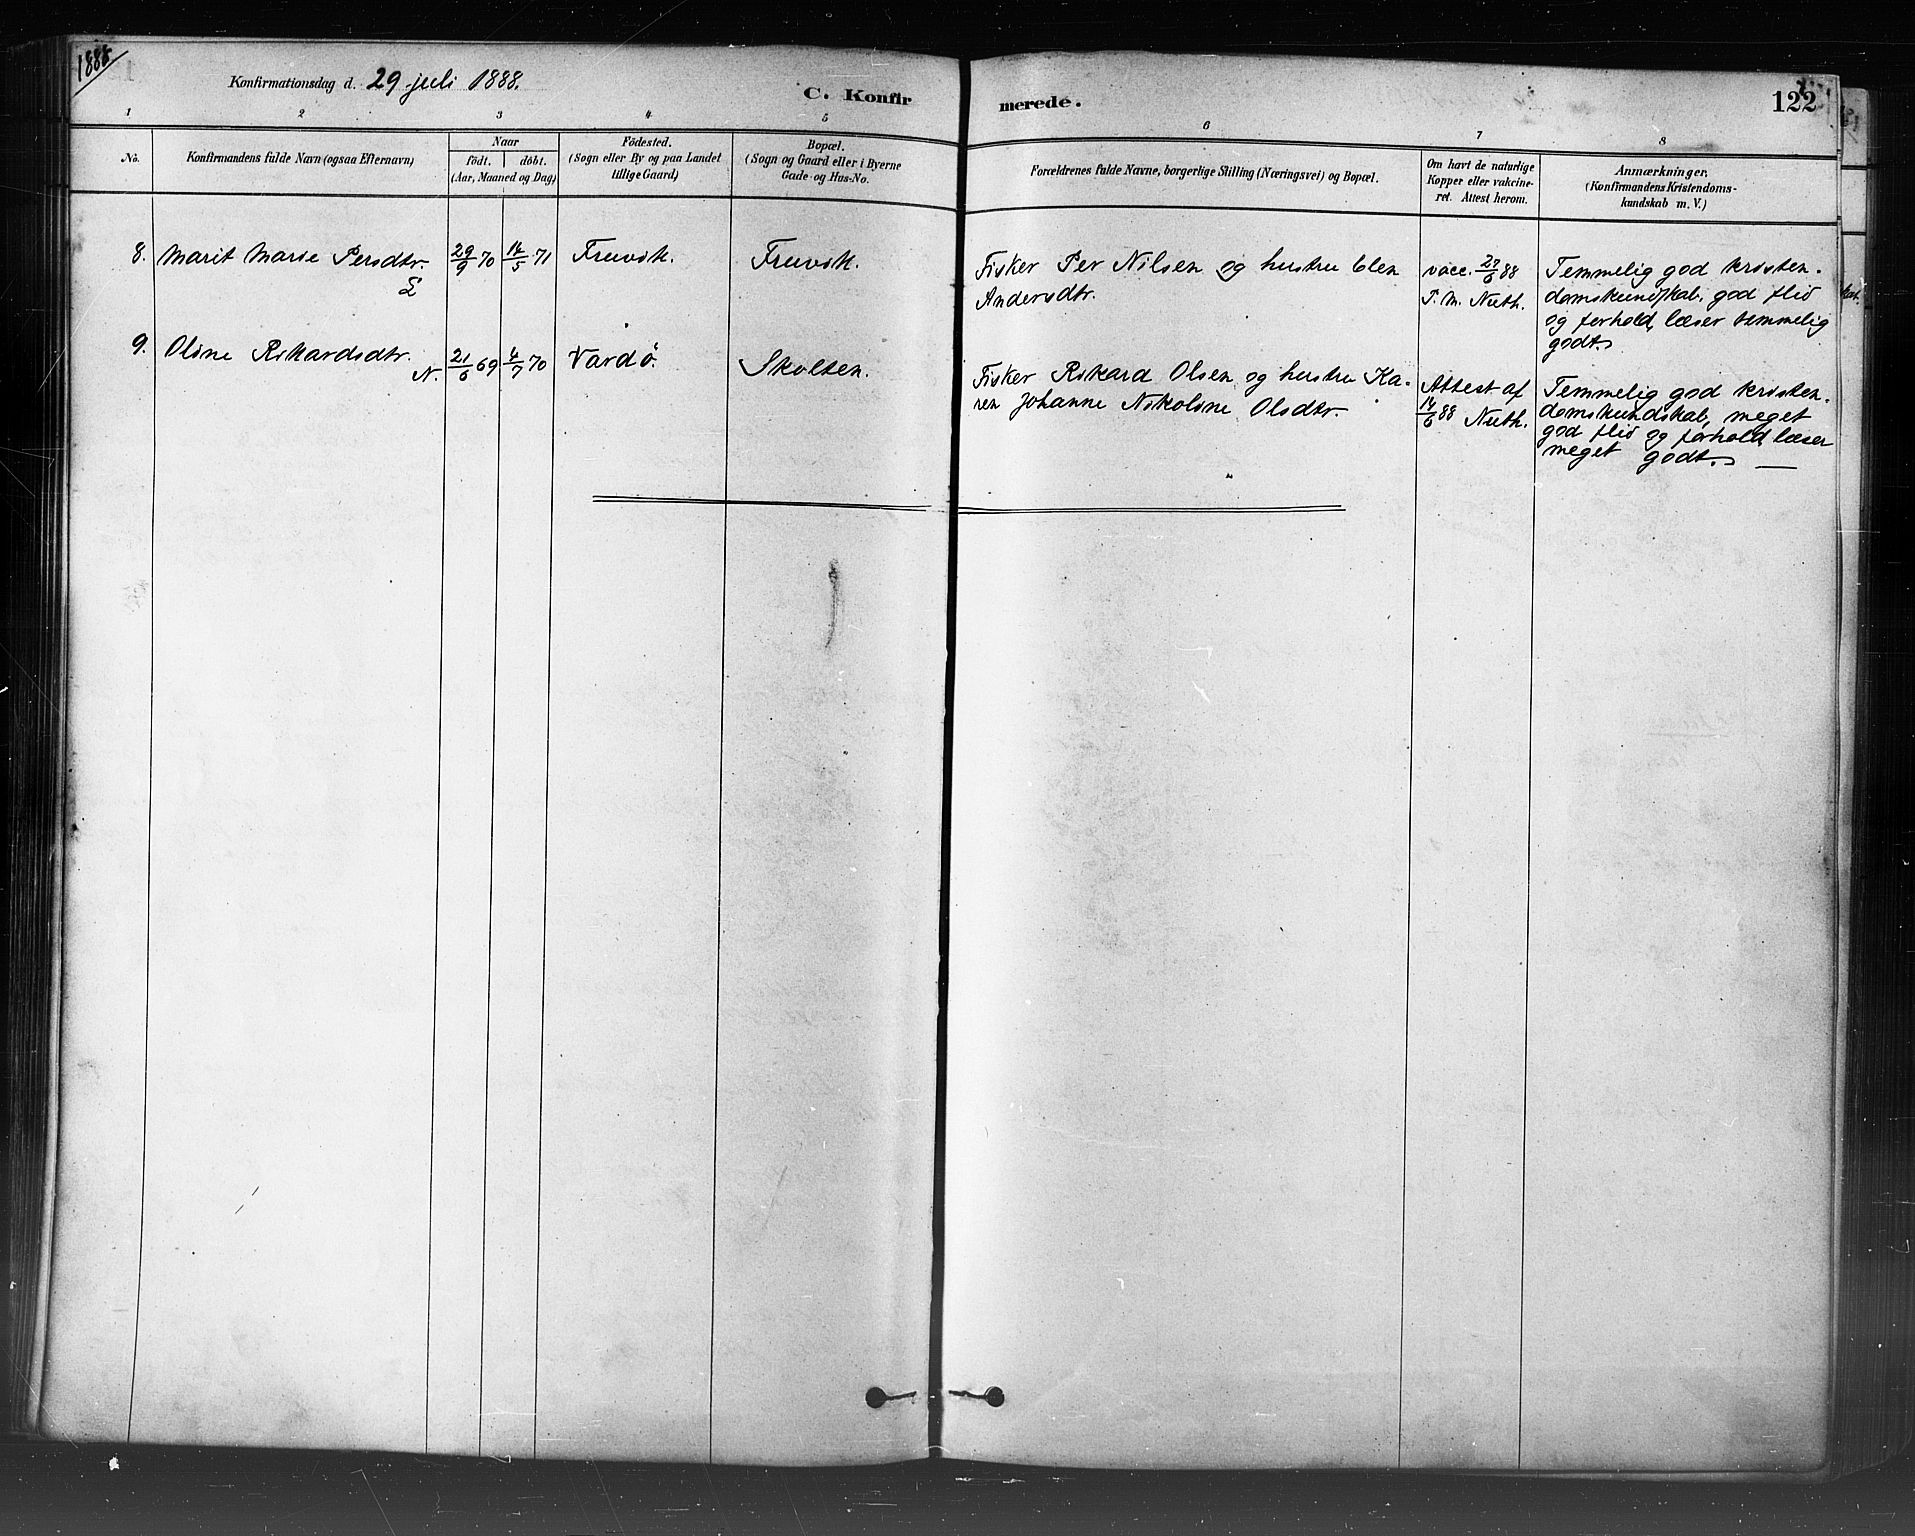 1888
Konfirmationsdag d. 29 juli 1888.
C. Konfirmerede.
122
1 2 3 4 5 6 7 8
No.
Konfirmandens fulde Navn (ogsaa Efternavn)
Naar
født. døbt.
(Aar, Maaned og Dag)
Födested.
(Sogn eller By og paa Landet
tillige Gaard)
Bopæl.
(Sogn og Gaard eller i Byerne
Gade og Hus-No.
Forældrenes fulde Navne, borgerlige Stilling (Næringsvei) og Bopæl.
Om havt de naturlige
Kopper eller vakcine-
ret. Attest herom.
Anmærkninger.
(Konfirmandens Kristendoms-
kundskab m. V.)
8. Marit Marie Persdtr.
L
29/9 70
14/5 71
Fruvik.
Fruvik.
Fisker Per Nilsen og hustru Elen
Andersdtr.
vacc. 27/6 88
P. M. Nuth.
Temmelig god kristen-
domskundskab, god flid
og forhold, læser temmelig
godt.
9. Oline Rikardsdtr.
N.
21/6 69
4/7 70
Vardö.
Skolten.
Fisker Rikard Olsen og hustru Ka-
ren Johanne Nikoline Olsdtr.
Attest af
14/6 88 Nuth.
Temmelig god kristen-
domskundskab, meget
god flid og forhold, læser
meget godt. —